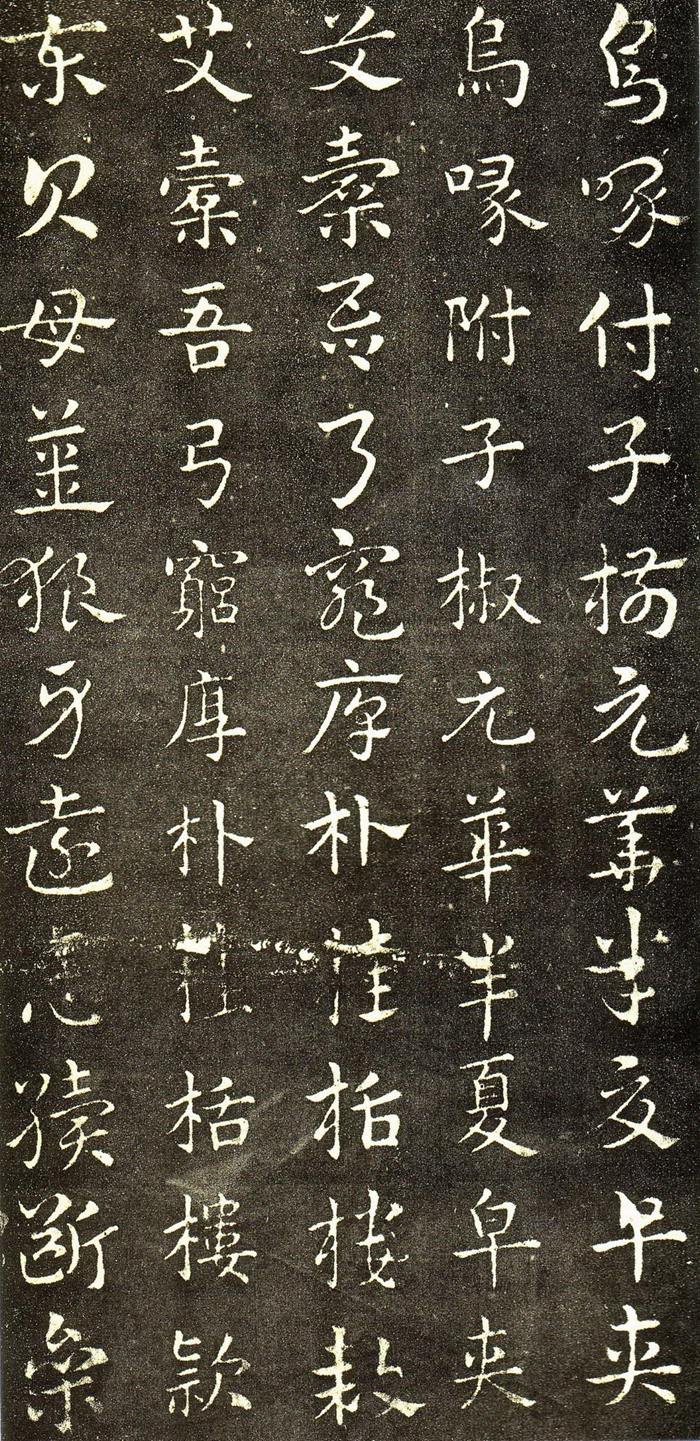 烏喙付子椒元華半夏早夾
烏喙附子椒元華半夏皁夾
艾橐吾弓窮厚朴桂栝樓款
艾橐吾弓窮厚朴桂栝樓款
东貝母薑狼牙遠志續斷參